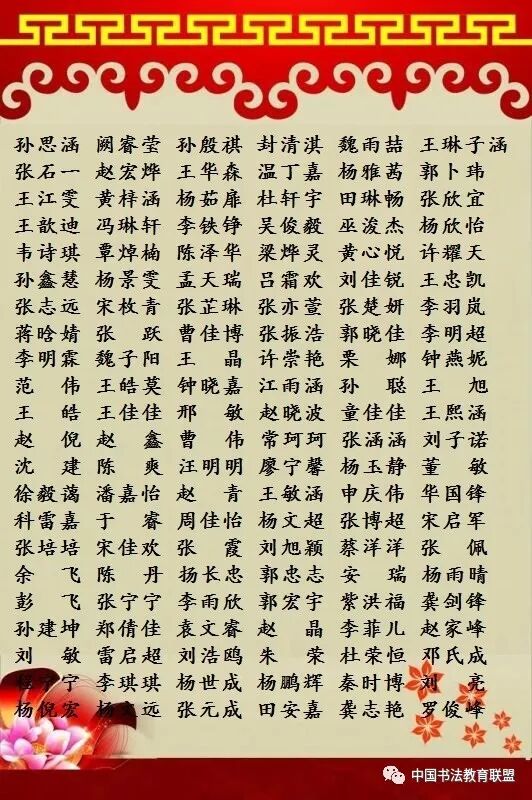 孙思涵 阙睿莹 孙殷祺 封清淇 魏雨喆 王琳子涵
张石一 赵宏烨 王华森 温丁嘉 杨雅茜 郭卜玮
王江雯 黄梓涵 杨茹扉 杜轩宇 田琳畅 张欣宜
王歆迪 冯琳轩 李铁铮 吴俊毅 巫浚杰 杨欣怡
韦诗琪 覃焯楠 陈泽华 梁烨灵 黄心悦 许耀天
孙鑫慧 杨景雯 孟天瑞 吕霜欢 刘佳锐 王忠凯
张志远 宋枚青 张芷琳 张亦萱 张楚妍 李羽岚
蒋晗婧 张跃 曹佳博 张振浩 郭晓佳 李明超
李明霖 魏子阳 王晶 许崇艳 栗娜 钟燕妮
范伟 王皓莫 钟晓嘉 江雨涵 孙聪 王旭
王皓 王佳佳 邢敏 赵晓波 童佳佳 王熙涵
赵倪 赵鑫 曹伟 常珂珂 张涵涵 刘子诺
沈建 陈爽 汪明明 廖宁馨 杨玉静 董敏
徐毅蔼 潘嘉怡 赵青 王敏涵 申庆伟 华国锋
科雷嘉 于睿 周佳怡 杨文超 张博超 宋启军
张培培 宋佳欢 张霞 刘旭颖 蔡洋洋 张佩
余飞 陈丹 扬长忠 郭忠志 安瑞 杨雨晴
彭飞 张宁宁 李雨欣 郭宏宇 紫洪福 龚剑锋
孙建坤 郑倩佳 袁文睿 赵晶 李菲儿 赵家峰
刘敏 雷启超 刘浩鸥 朱荣 杜荣恒 邓氏成
宁宁 李琪琪 杨世成 杨鹏辉 秦时博 刘亮
杨倪宏 杨文远 张元成 田安嘉 龚志艳 罗俊峰
中国书法教育联盟